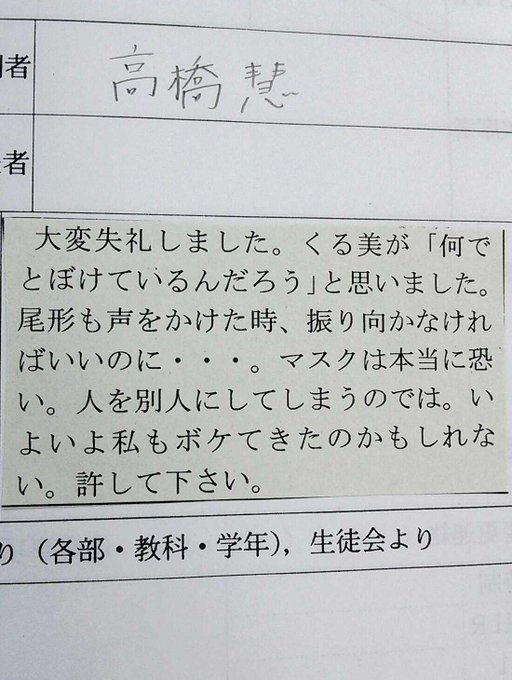 者
高橋 慧
者
大変失礼しました。くる美が「何で
とぼけているんだろう」と思いました。
尾形も声をかけた時、振り向かなけれ
ばいいのに・・・。マスクは本当に恐
い。人を別人にしてしまうのでは。い
よいよ私もボケてきたのかもしれな
い。許して下さい。
り（各部・教科・学年），生徒会より